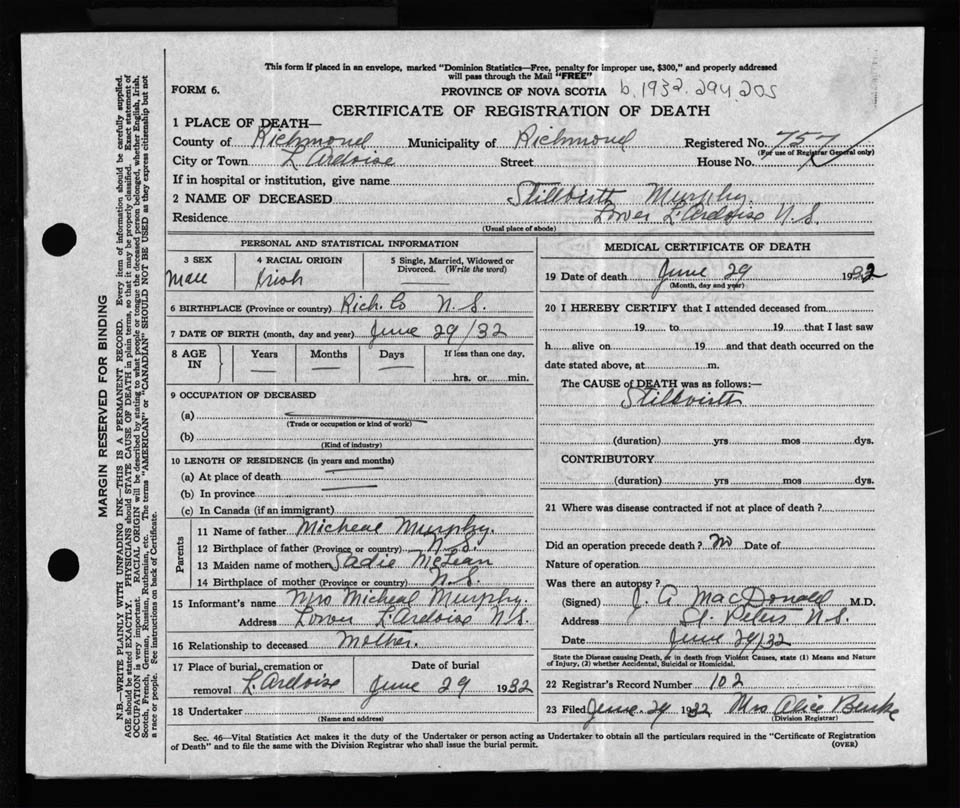 This form if placed in an envelope, marked "Dominion Statistics—Free, penalty for improper use, $300," and properly addressed
will pass through the Mail "FREE"
FORM 6.
PROVINCE OF NOVA SCOTIA b. 1932. 294.205
CERTIFICATE OF REGISTRATION OF DEATH
1 PLACE OF DEATH—
County of Richmond Municipality of Richmond Registered No. 757
(For use of Registrar General only)
City or Town L'Ardoise Street House No.
If in hospital or institution, give name
2 NAME OF DECEASED Stillbirth Murphy.
Residence Lower L'Ardoise N.S.
(Usual place of abode)
PERSONAL AND STATISTICAL INFORMATION
3 SEX 4 RACIAL ORIGIN 5 Single, Married, Widowed or
Divorced. (Write the word)
Male Irish
6 BIRTHPLACE (Province or country) Rich. Co N.S.
7 DATE OF BIRTH (month, day and year) June 29/32
8 AGE IN Years Months Days If less than one day,
hrs. or min.
9 OCCUPATION OF DECEASED
(a)
(Trade or occupation or kind of work)
(b)
(Kind of industry)
10 LENGTH OF RESIDENCE (in years and months)
(a) At place of death
(b) In province
(c) In Canada (if an immigrant)
Parents
11 Name of father Micheal Murphy.
12 Birthplace of father (Province or country) N.S.
13 Maiden name of mother Sadie McLean
14 Birthplace of mother (Province or country) N.S.
15 Informant's name Mrs Micheal Murphy.
Address Lower L'Ardoise N.S.
16 Relationship to deceased Mother.
17 Place of burial, cremation or Date of burial
removal L'Ardoise June 29 1932
18 Undertaker
(Name and address)
MEDICAL CERTIFICATE OF DEATH
19 Date of death June 29 1932
(Month, day and year)
20 I HEREBY CERTIFY that I attended deceased from
19 to 19 that I last saw
h alive on 19 and that death occurred on the
date stated above, at m.
The CAUSE of DEATH was as follows:—
Stillbirth
(duration) yrs mos dys.
CONTRIBUTORY
(duration) yrs mos dys.
21 Where was disease contracted if not at place of death?
Did an operation precede death? No Date of
Nature of operation
Was there an autopsy?
(Signed) J. A MacDonald M.D.
Address St. Peters N.S.
Date June 29/32
State the Disease causing Death, or in death from Violent Causes, state (1) Means and Nature
of Injury, (2) whether Accidental, Suicidal or Homicidal.
22 Registrar's Record Number 102
23 Filed June 29 1932 Mrs Alice Burke
(Division Registrar)
Sec. 46—Vital Statistics Act makes it the duty of the Undertaker or person acting as Undertaker to obtain all the particulars required in the "Certificate of Registration
of Death" and to file the same with the Division Registrar who shall issue the burial permit.
(OVER)
MARGIN RESERVED FOR BINDING
N.B.—WRITE PLAINLY WITH UNFADING INK—THIS IS A PERMANENT RECORD. Every item of information should be carefully supplied.
AGE should be stated EXACTLY. PHYSICIANS should STATE CAUSE OF DEATH in plain terms, so that it may be properly classified. Exact statement of
OCCUPATION is very important. RACIAL ORIGIN will be described by stating to what people or tongue the deceased person belonged, whether English, Irish,
Scotch, French, German, Russian, Ruthenian, etc. The terms "AMERICAN" or "CANADIAN" SHOULD NOT BE USED as they express citizenship but not
a race or people. See instructions on back of Certificate.